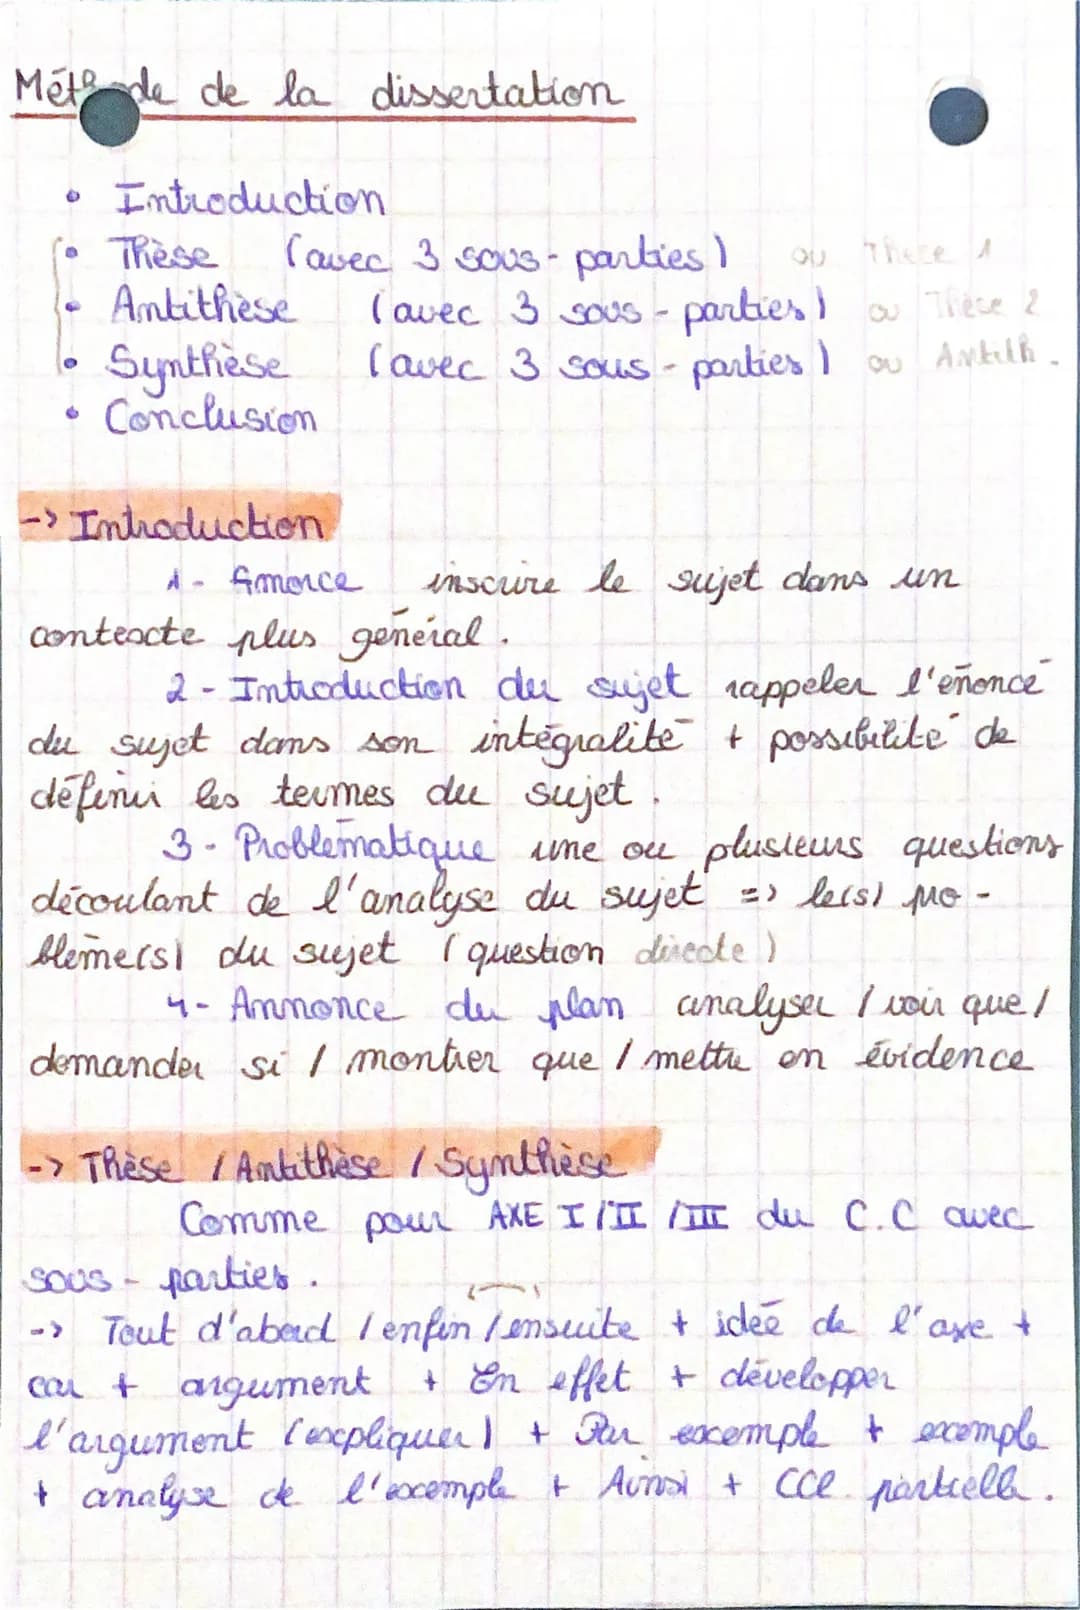 Méthode de la dissertation
• Introduction
• Thèse (avec 3 sous-parties) ou Thèse 1
• Antithèse (avec 3 sous-parties) ou Thèse 2
• Synthèse (avec 3 sous-parties) ou Antith.
• Conclusion
-> Introduction
1- Amorce inscrire le sujet dans un
contexte plus général.
2- Introduction du sujet rappeler l'énoncé
du sujet dans son intégralité + possibilité de
définir les termes du sujet.
3- Problématique une ou plusieurs questions
découlant de l'analyse du sujet => le(s) pro-
blème(s) du sujet (question directe)
4- Annonce du plan analyser / voir que /
demander si / montrer que / mettre en évidence
-> Thèse / Antithèse / Synthèse
Comme pour AXE I / II / III du C.C avec
sous-parties.
-> Tout d'abord / enfin / ensuite + idée de l'axe +
car + argument + En effet + développer
l'argument (expliquer) + Par exemple + exemple
+ analyse de l'exemple + Ainsi + CCl partielle.